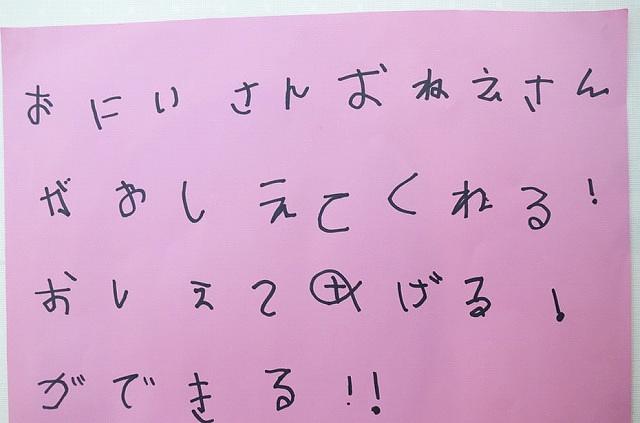 おにいさんおねえさん
がおしえてくれる!
おしえてあげる!
ができる!!